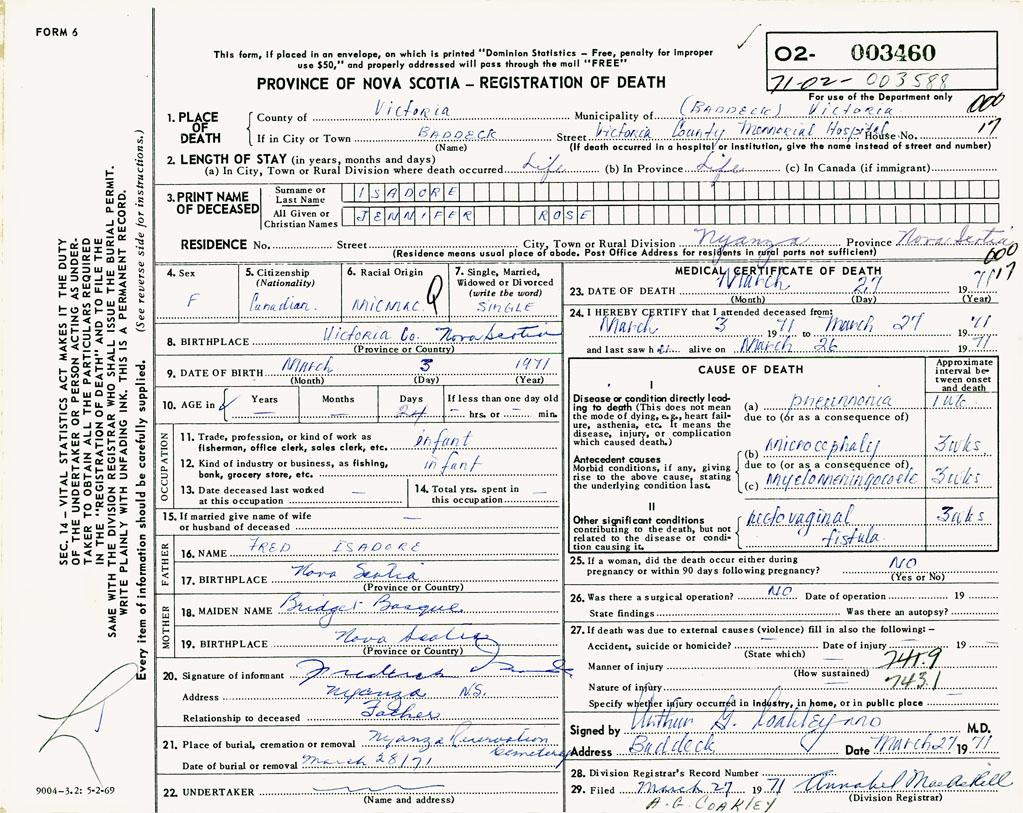 FORM 6
This form, if placed in an envelope, on which is printed "Dominion Statistics – Free, penalty for improper
use $50," and properly addressed will pass through the mail "FREE"
PROVINCE OF NOVA SCOTIA – REGISTRATION OF DEATH
02- 003460
71-02- 003588
For use of the Department only
000
17
1. PLACE OF DEATH
County of Victoria Municipality of (BADDECK) Victoria
If in City or Town BADDECK Street Victoria County Memorial Hospital House No.
(Name) (If death occurred in a hospital or institution, give the name instead of street and number)
2. LENGTH OF STAY (in years, months and days)
(a) In City, Town or Rural Division where death occurred Life (b) In Province Life (c) In Canada (if immigrant)
3. PRINT NAME OF DECEASED
Surname or Last Name ISADORE
All Given or Christian Names JENNIFER ROSE
RESIDENCE No. Street City, Town or Rural Division Nyanza Province Nova Scotia
(Residence means usual place of abode. Post Office Address for residents in rural parts not sufficient)
000
17
4. Sex
F
5. Citizenship
(Nationality)
Canadian
6. Racial Origin
MICMAC
7. Single, Married,
Widowed or Divorced
(write the word)
SINGLE
8. BIRTHPLACE Victoria Co. Nova Scotia
(Province or Country)
9. DATE OF BIRTH March 3 1971
(Month) (Day) (Year)
10. AGE in Years Months Days If less than one day old
— — 24 — hrs. or — min.
OCCUPATION
11. Trade, profession, or kind of work as
fisherman, office clerk, sales clerk, etc. infant
12. Kind of industry or business, as fishing,
bank, grocery store, etc. infant
13. Date deceased last worked
at this occupation —
14. Total yrs. spent in
this occupation —
15. If married give name of wife
or husband of deceased —
FATHER
16. NAME FRED ISADORE
17. BIRTHPLACE Nova Scotia
(Province or Country)
MOTHER
18. MAIDEN NAME Bridget Basque
19. BIRTHPLACE Nova Scotia
(Province or Country)
20. Signature of informant Frederick
Address Nyanza N.S.
Relationship to deceased Father
21. Place of burial, cremation or removal Nyanza Reservation Cemetery
Date of burial or removal March 28/71
22. UNDERTAKER —
(Name and address)
MEDICAL CERTIFICATE OF DEATH
23. DATE OF DEATH March 27 1971
(Month) (Day) (Year)
24. I HEREBY CERTIFY that I attended deceased from:
March 3 1971 to March 27 1971
and last saw h er alive on March 26 1971
CAUSE OF DEATH
Approximate
interval be-
tween onset
and death
I
Disease or condition directly lead-
ing to death (This does not mean
the mode of dying, e.g., heart fail-
ure, asthenia, etc. It means the
disease, injury, or complication
which caused death.)
(a) pneumonia 1 wk
due to (or as a consequence of)
Antecedent causes
Morbid conditions, if any, giving
rise to the above cause, stating
the underlying condition last.
(b) microcephaly 3 wks
due to (or as a consequence of)
(c) myelomeningocoele 3 wks
II
Other significant conditions
contributing to the death, but not
related to the disease or condi-
tion causing it.
rectovaginal
fistula 3 wks
25. If a woman, did the death occur either during
pregnancy or within 90 days following pregnancy? NO
(Yes or No)
26. Was there a surgical operation? NO Date of operation 19
State findings Was there an autopsy?
27. If death was due to external causes (violence) fill in also the following:–
Accident, suicide or homicide? — Date of injury — 19
(State which)
Manner of injury 741.9
(How sustained)
Nature of injury 743.1
Specify whether injury occurred in industry, in home, or in public place
Signed by Arthur G. Coakley MD M.D.
Address Baddeck Date March 27 1971
28. Division Registrar's Record Number
29. Filed March 27 1971 Annabel MacAskill
(Division Registrar)
A. G. COAKLEY
SEC. 14 – VITAL STATISTICS ACT MAKES IT THE DUTY
OF THE UNDERTAKER OR PERSON ACTING AS UNDER-
TAKER TO OBTAIN ALL THE PARTICULARS REQUIRED
IN THE "REGISTRATION OF DEATH" AND TO FILE THE
SAME WITH THE DIVISION REGISTRAR WHO SHALL ISSUE THE BURIAL PERMIT.
WRITE PLAINLY WITH UNFADING INK. THIS IS A PERMANENT RECORD.
Every item of information should be carefully supplied. (See reverse side for instructions.)
9004-3.2: 5-2-69